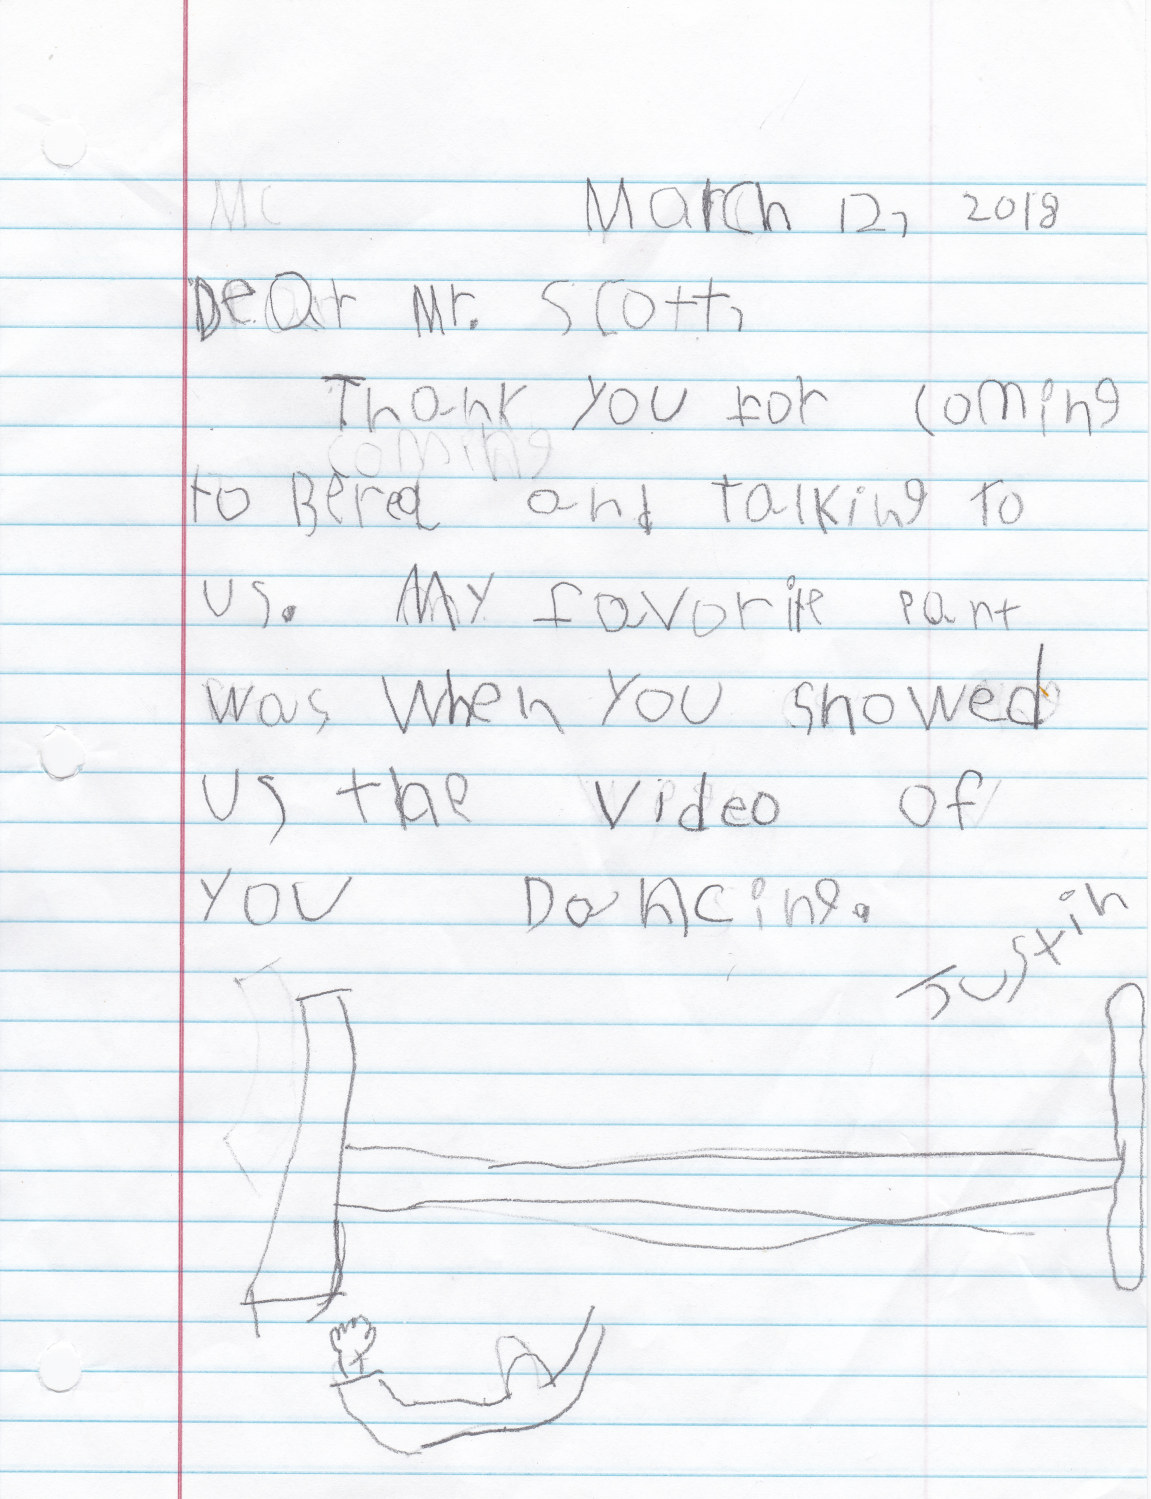 March 12, 2018
Dear Mr. Scott,
Thank you for coming
to Berea and talking to
us. My favorite part
was when you showed
us the video of
you Dancing.
Justin